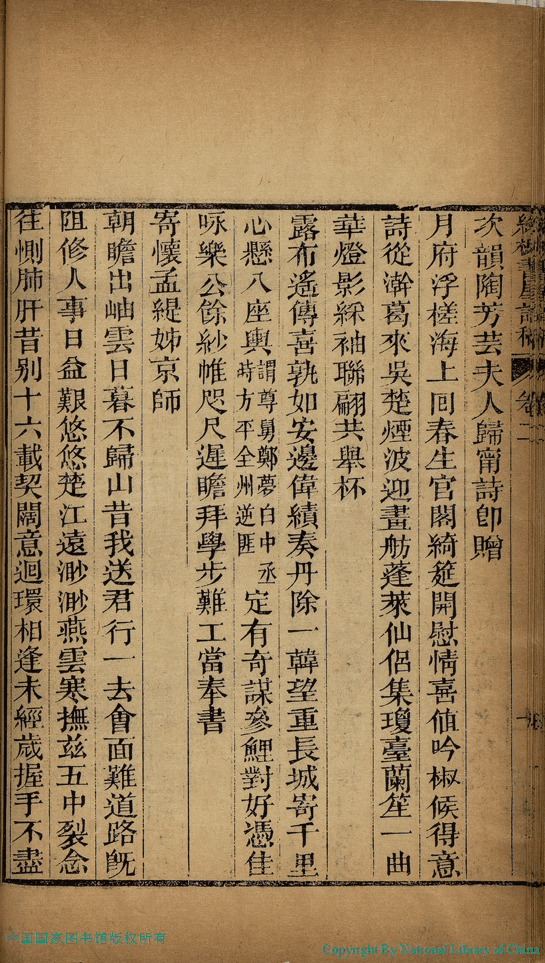 次韻陶芳芸夫人歸甯詩即贈
月府浮槎海上回春生官閣綺筵開慰情喜値吟椒候得意
詩從澣葛來吳楚煙波迎畫舫蓬萊仙侶集瓊臺蘭笙一曲
華燈影綵袖聯翩共舉杯
露布遙傳喜孰如安邊偉績奏丹除一韓望重長城寄千里
心懸八座輿謂尊舅鄭夢白中丞時方平全州逆匪定有奇謀參鯉對好憑佳
咏樂公餘紗帷咫尺遲瞻拜學步難工當奉書
寄懷孟緹姊京師
朝瞻出岫雲日暮不歸山昔我送君行一去會面難道路旣
阻修人事日益艱悠悠楚江遠渺渺燕雲寒撫兹五中裂念
往惻肺肝昔别十六載契闊意迴環相逢未經歲握手不盡
卷二
中国国家图书馆版权所有
Copyright By National Library of China